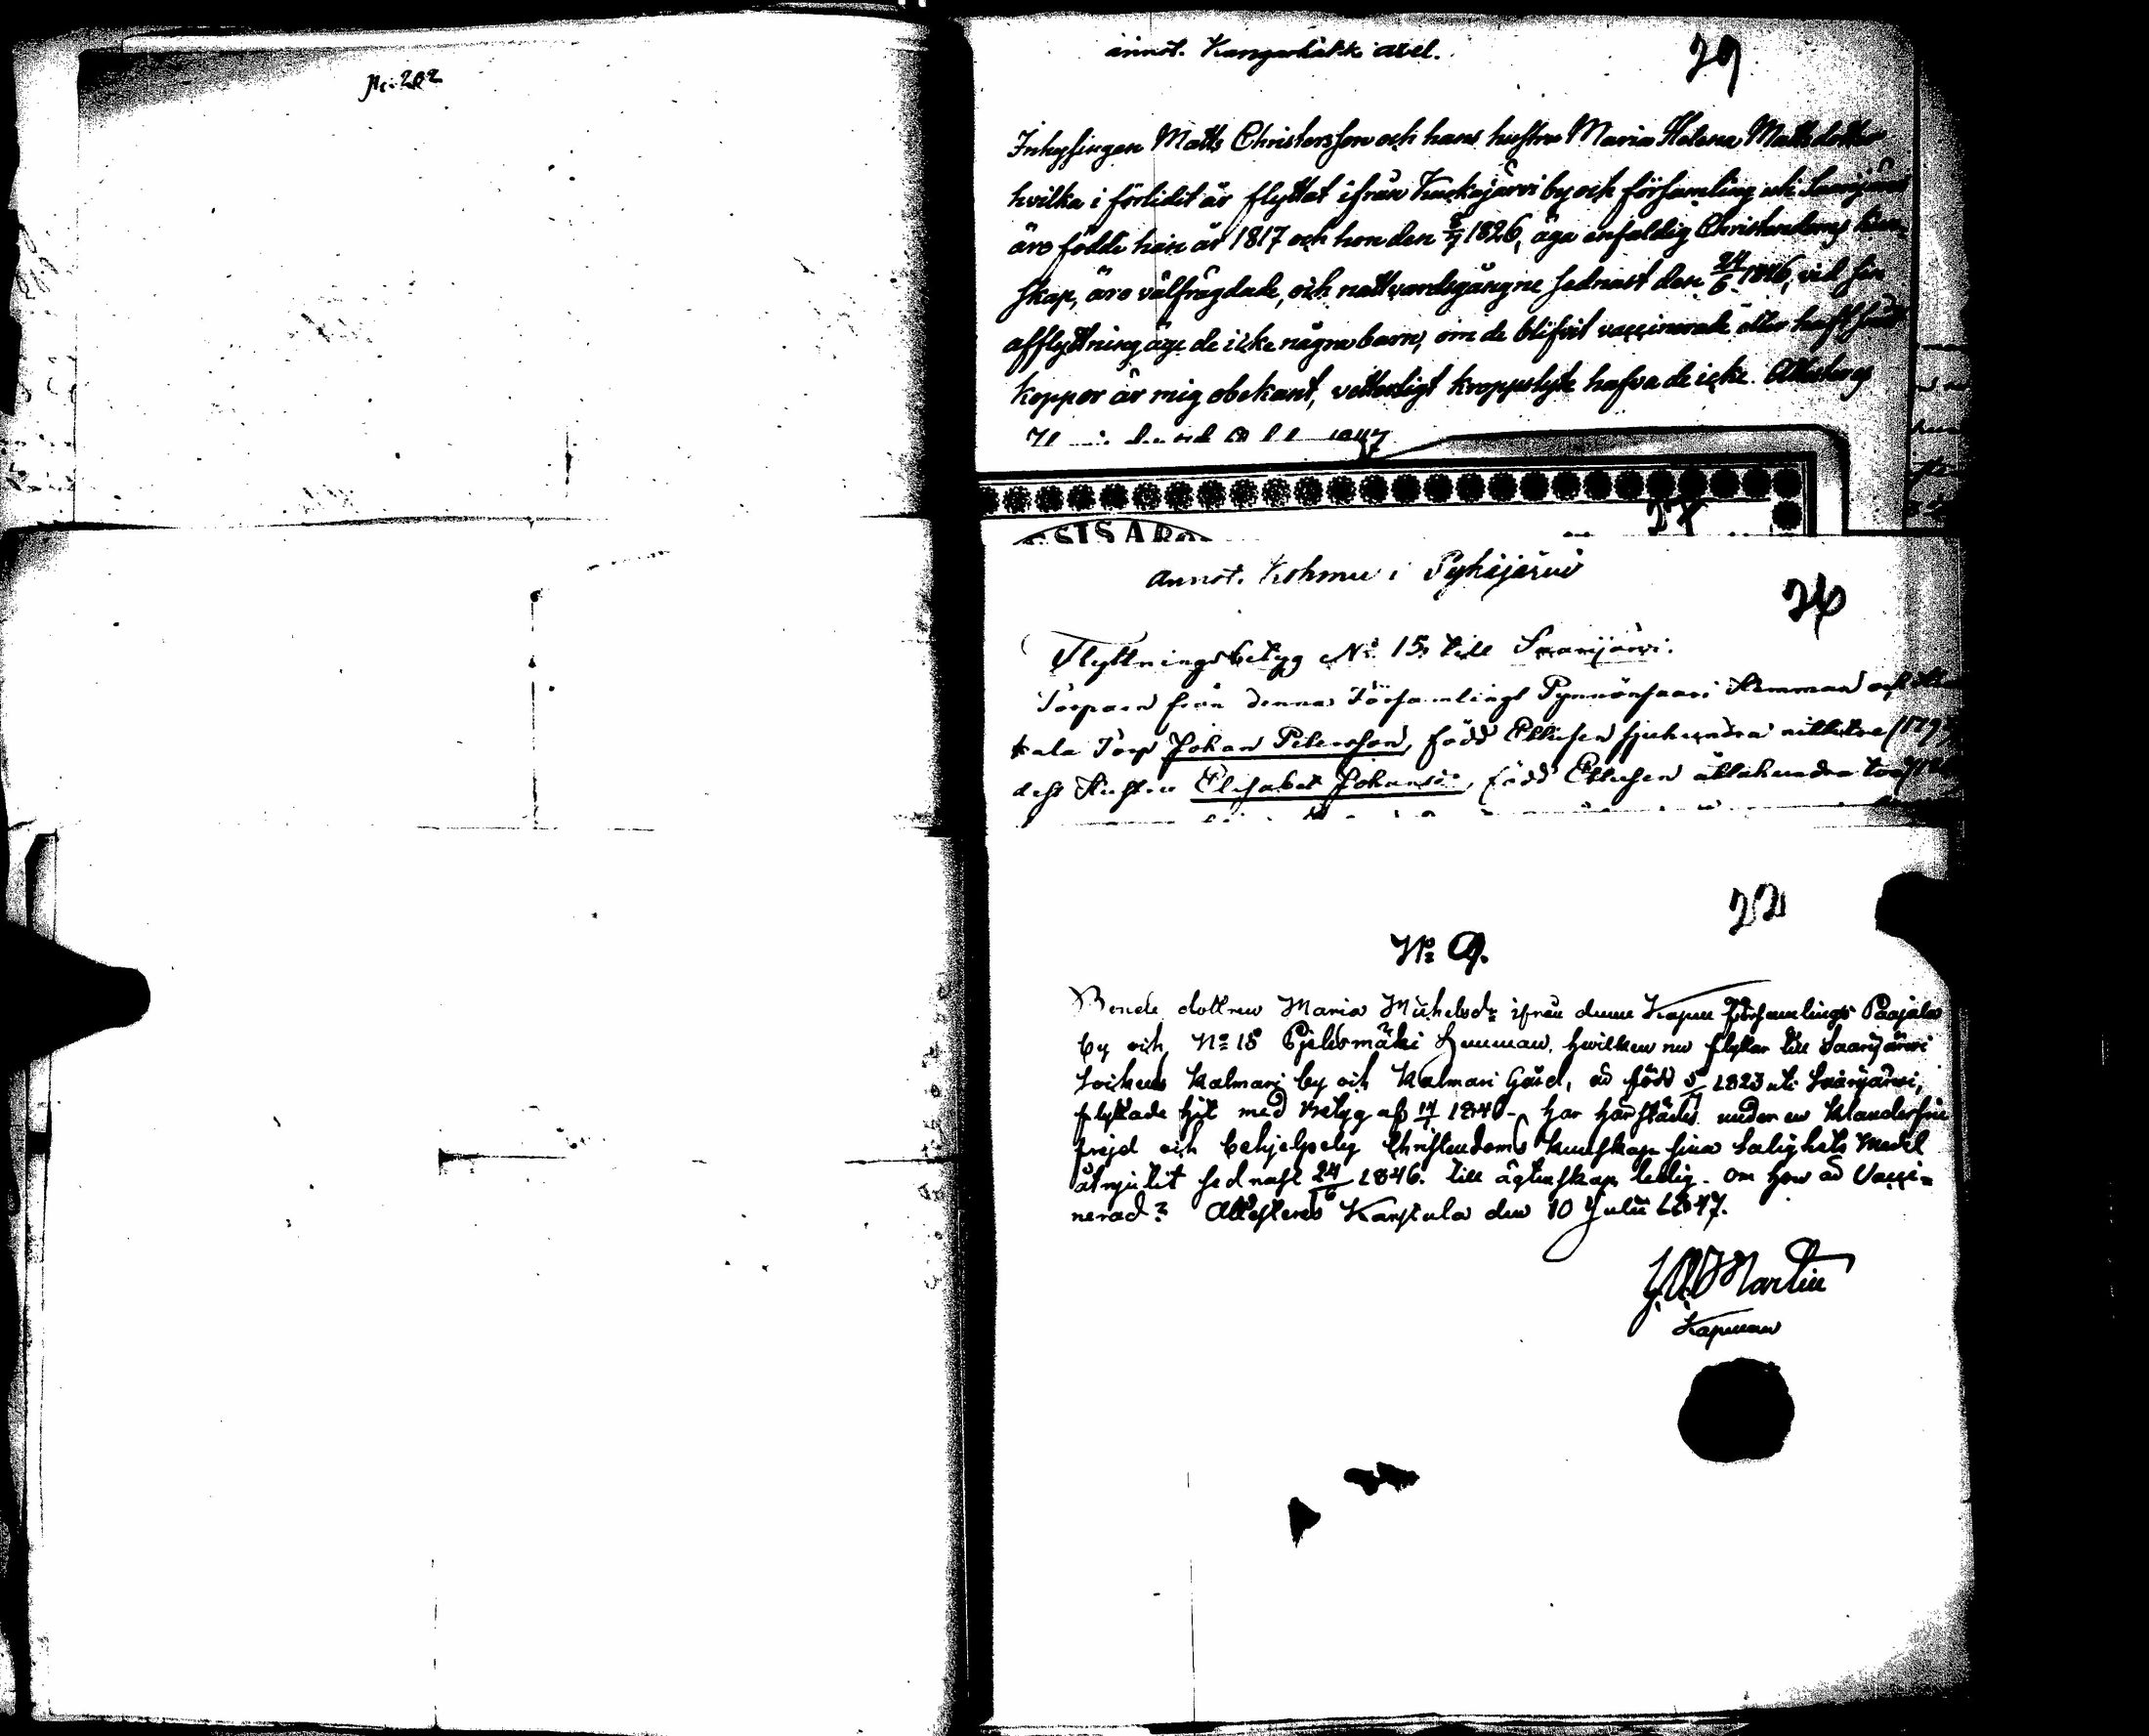 No 202
annot. Kangarhatk arel.
29
Inhysingen Matts Christersson och hans hustru Maria Helena Mattsdotter
hvilka i förlidit år flyttat ifrån by och församling uti Saarijärvi
äro födde han år 1817 och hon den 8/7 1826, äga enfaldig Christendoms kun-
skap, äro välfrägdade, och nattvardsgångne sednast den 24/6 1846, vid sin
afflyttning äga de icke några barn, om de blifvit vaccinerade eller haft
koppor är mig obekant, vetterligt kroppslyte hafva de icke. Attesteras
1847
27
annot. Kohmu i Pyhäjärvi
26
Flyttningsbetyg No 15 till Saarijärvi.
Torparen från denna Församlings Pynnönsaari Hemman och
kala Torp Johan Petersson, född Ettusen sjuhundra nittitre (179
dess Hustru Elisabet Johansd:, född Ettusen åttahundra två (18
22
No 9.
Bonde dottren Maria Michelsd: ifrån denne Kapell församlings Paajala
by och No 18 Pjelesmäki hemman, hwilken nu flyttar till Saarijärwi
Sockens Kalmari by och Kalmari Gård, är född 5/7 1823 uti Saarijärwi,
flyttade hit med betyg af 1840 - har härstädes under en klanderfri
frejd och behjelpelig Christendoms kunskap sina Salighets Medel
åtnjutit sednast 24/6 1846. till ägtenskap ledig. Om hon är Vacci-
nerad? Attesteras Karstula den 10 Julii 1847.
Martin
Kapellan